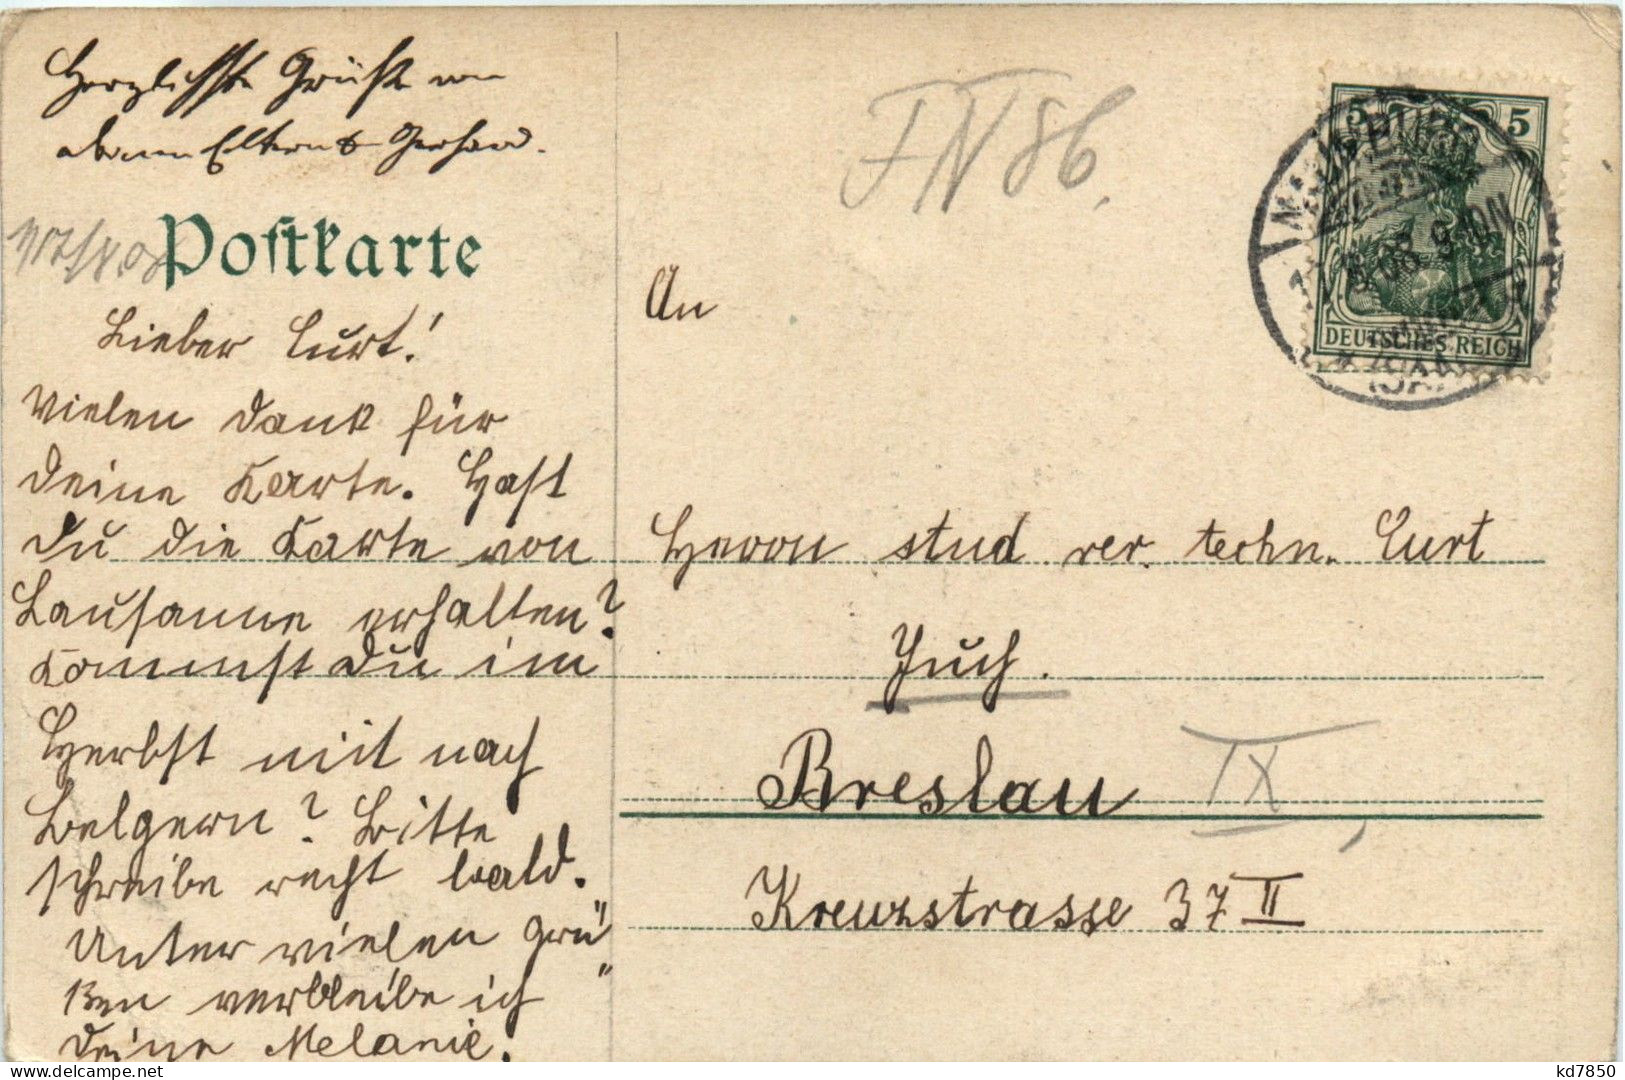 Herzlichste Grüße von
deinen Eltern & Gerhard.
Postkarte
Lieber Curt!
Vielen Dank für
Deine Karte. Hast
Du die Karte von
Lausanne erhalten?
Kommst Du im
Herbst mit nach
Belgern? Bitte
schreibe recht bald.
Unter vielen Grü"
"ßen verbleibe ich
Deine Melanie.
FN 86.
5 5
NAUMBURG
9-10N
(SAALE)
DEUTSCHES REICH
An
Herrn stud rer. techn. Curt
Juch.
Breslau IX,
Kreuzstrasse 37 II
www.delcampe.net
kd7850